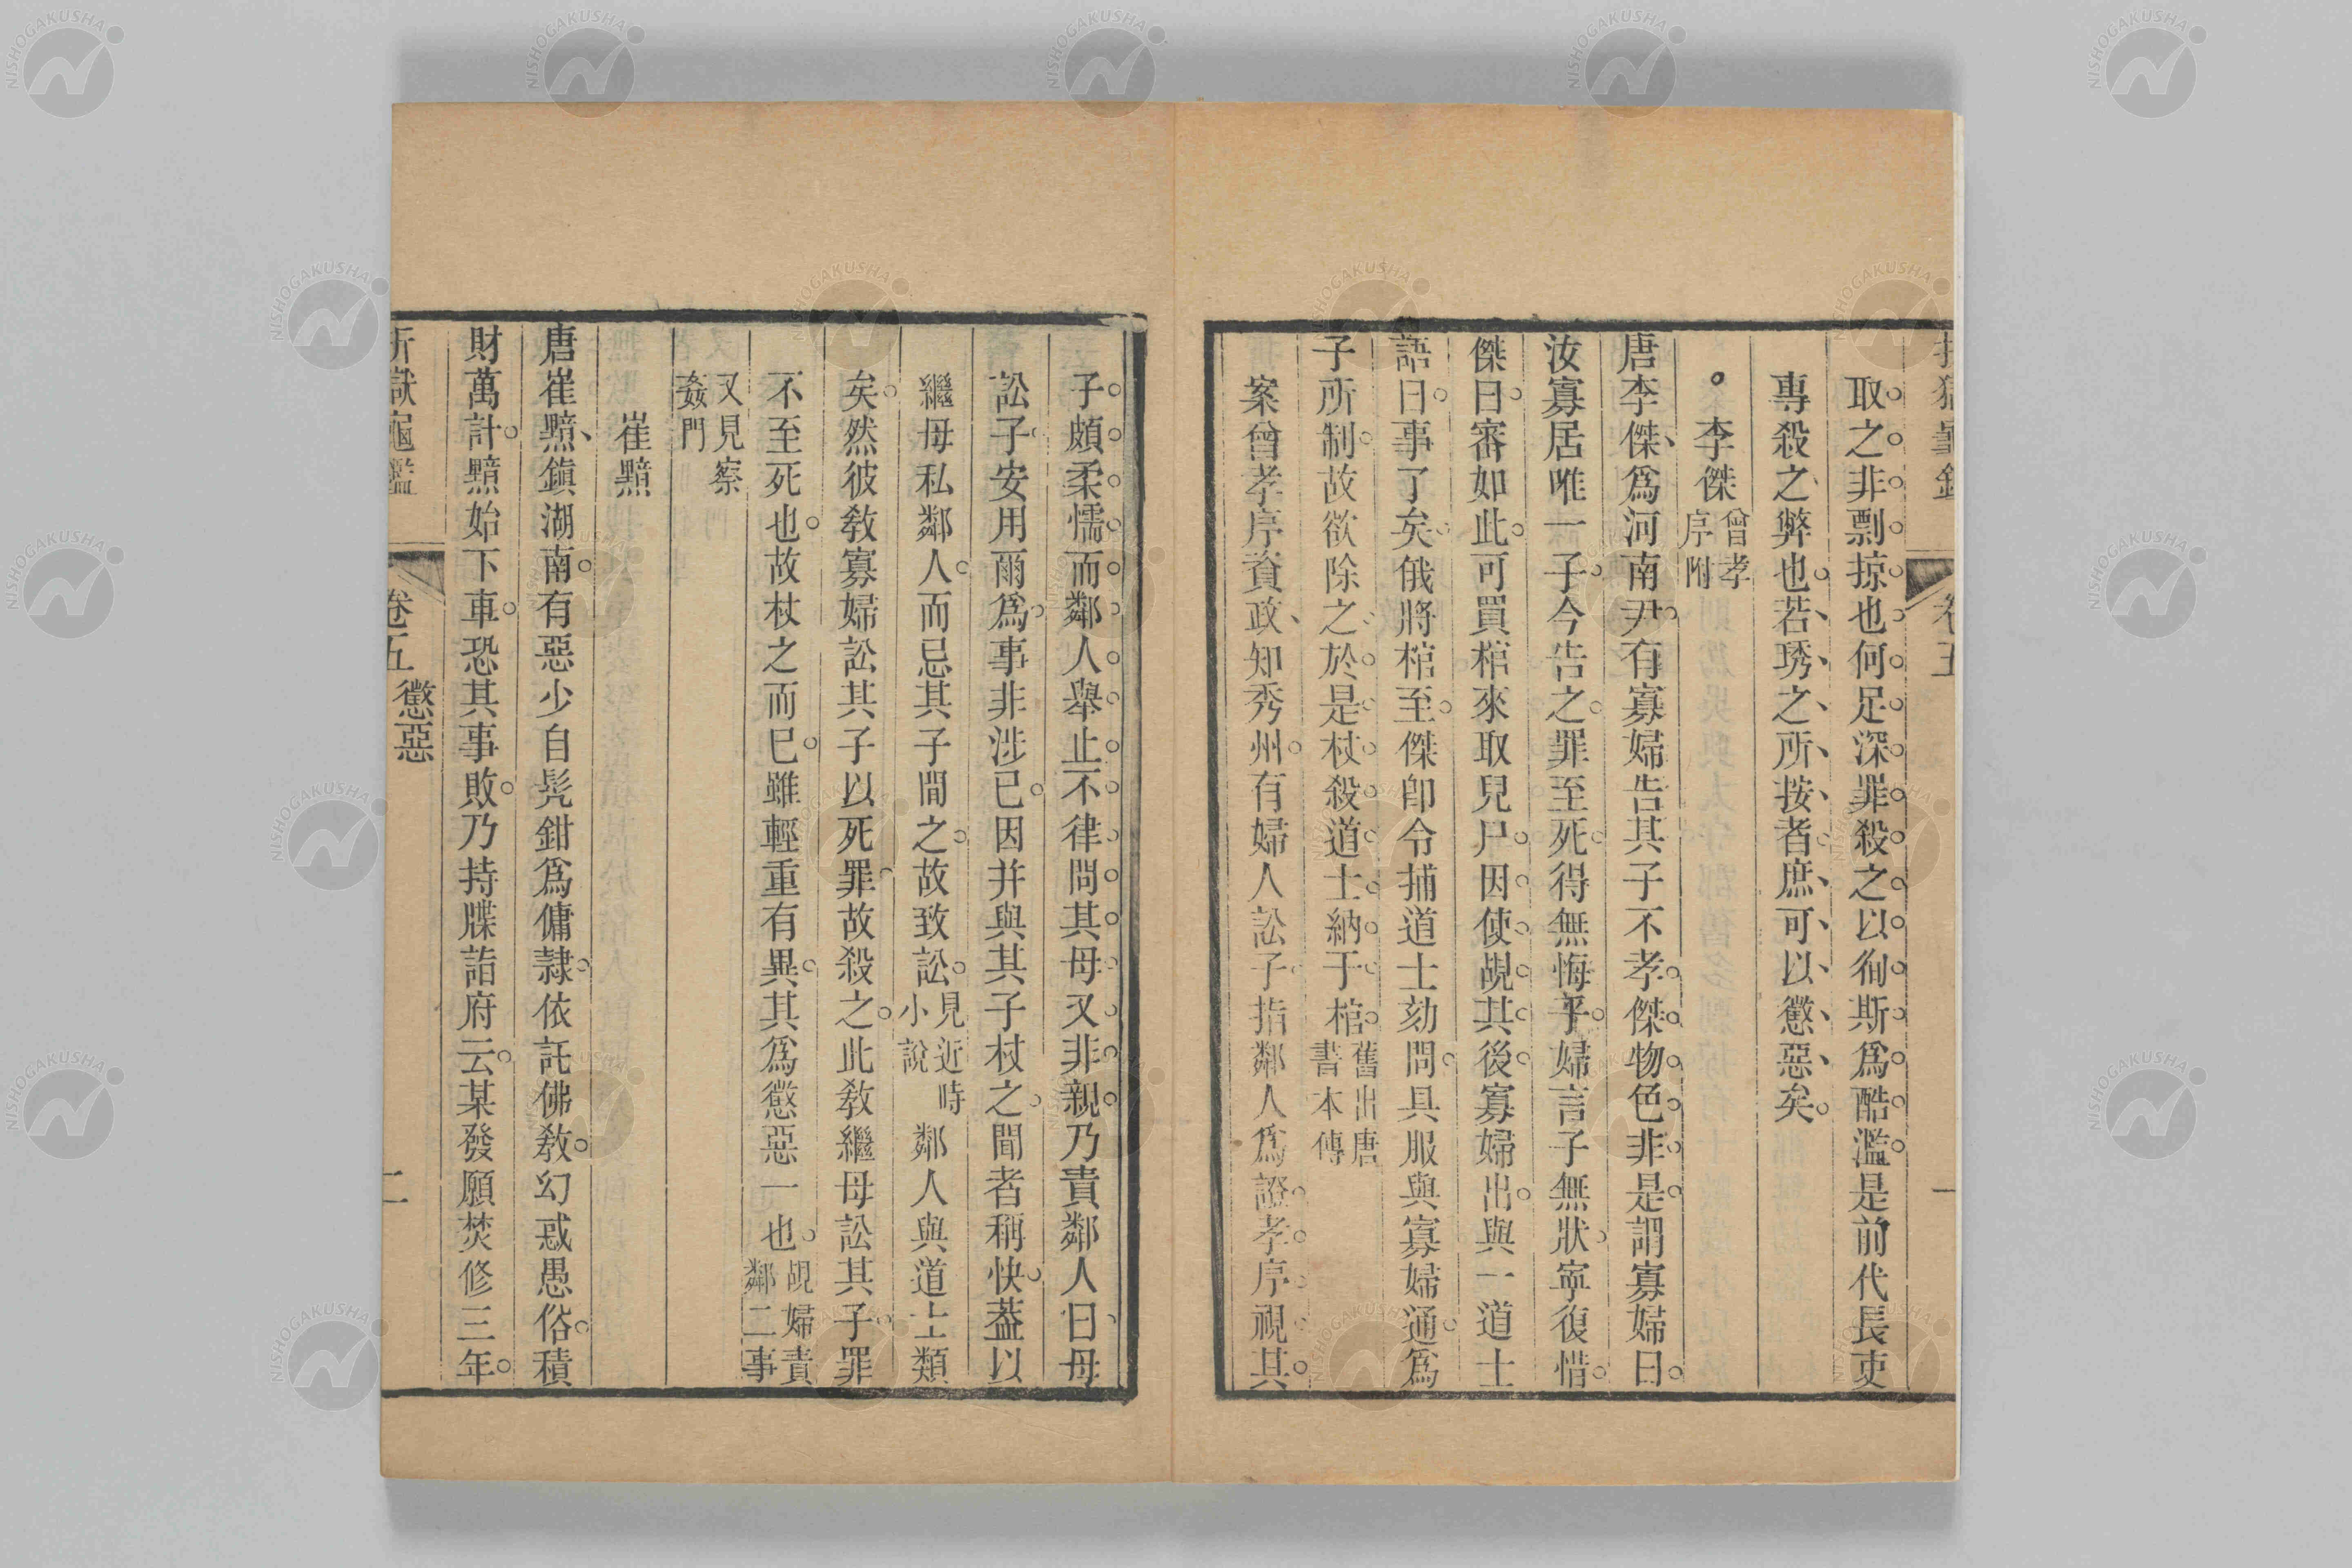 取之非剽掠也何足深罪殺之以徇斯爲酷濫是前代長吏
專殺之弊也若琇之所按者庶可以懲惡矣
李傑 曾孝序附
唐李傑爲河南尹有寡婦告其子不孝傑物色非是謂寡婦曰
汝寡居唯一子今告之罪至死得無悔乎婦言子無狀寧復惜
傑曰審如此可買棺來取兒尸因使覘其後寡婦出與一道士
語曰事了矣俄將棺至傑卽令捕道士劾問具服與寡婦通爲
子所制故欲除之於是杖殺道士納于棺 舊出唐書本傳
案曾孝序資政知秀州有婦人訟子指鄰人爲證孝序視其
子頗柔懦而鄰人舉止不律問其母又非親乃責鄰人曰母
訟子安用爾爲事非涉已因并與其子杖之聞者稱快葢以
繼母私鄰人而忌其子間之故致訟 見近時小說 鄰人與道士類
矣然彼敎寡婦訟其子以死罪故殺之此敎繼母訟其子罪
不至死也故杖之而已雖輕重有異其爲懲惡一也 覘婦責鄰二事
又見察姦門
崔黯
唐崔黯鎭湖南有惡少自髡鉗爲傭隷依託佛敎幻惑愚俗積
財萬計黯始下車恐其事敗乃持牒詣府云某發願焚修三年
卷五 懲惡
二
NISHOGAKUSHA